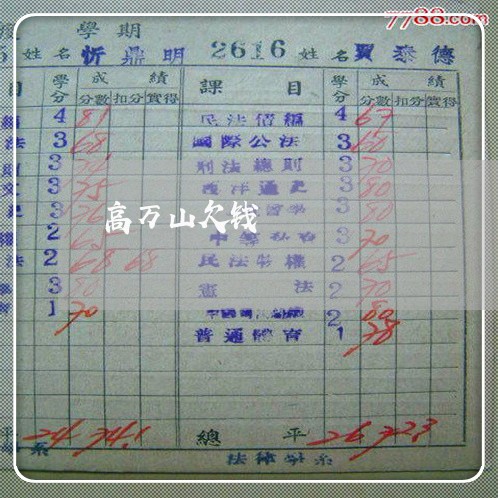 7788.com
學期
5 姓名 忻鼎明 2616 姓名 賈泰德
目 學分 成績 課目 學分 成績
分數 扣分 實得 分數 扣分 實得
4 81 民法債編 4 67
法 3 68 國際公法 3 60
則 3 刑法總則 3 70
文 3 75 西洋通史 3 80
史 3 76 3 80
高万山欠钱
權 2 3 70
法 2 68 68 民法物權 2 65
3 80 憲法 2 70
育 1 70 2 80
普通體育 1 78
平 24 74.1 總平 26 72.3
系 法律學系